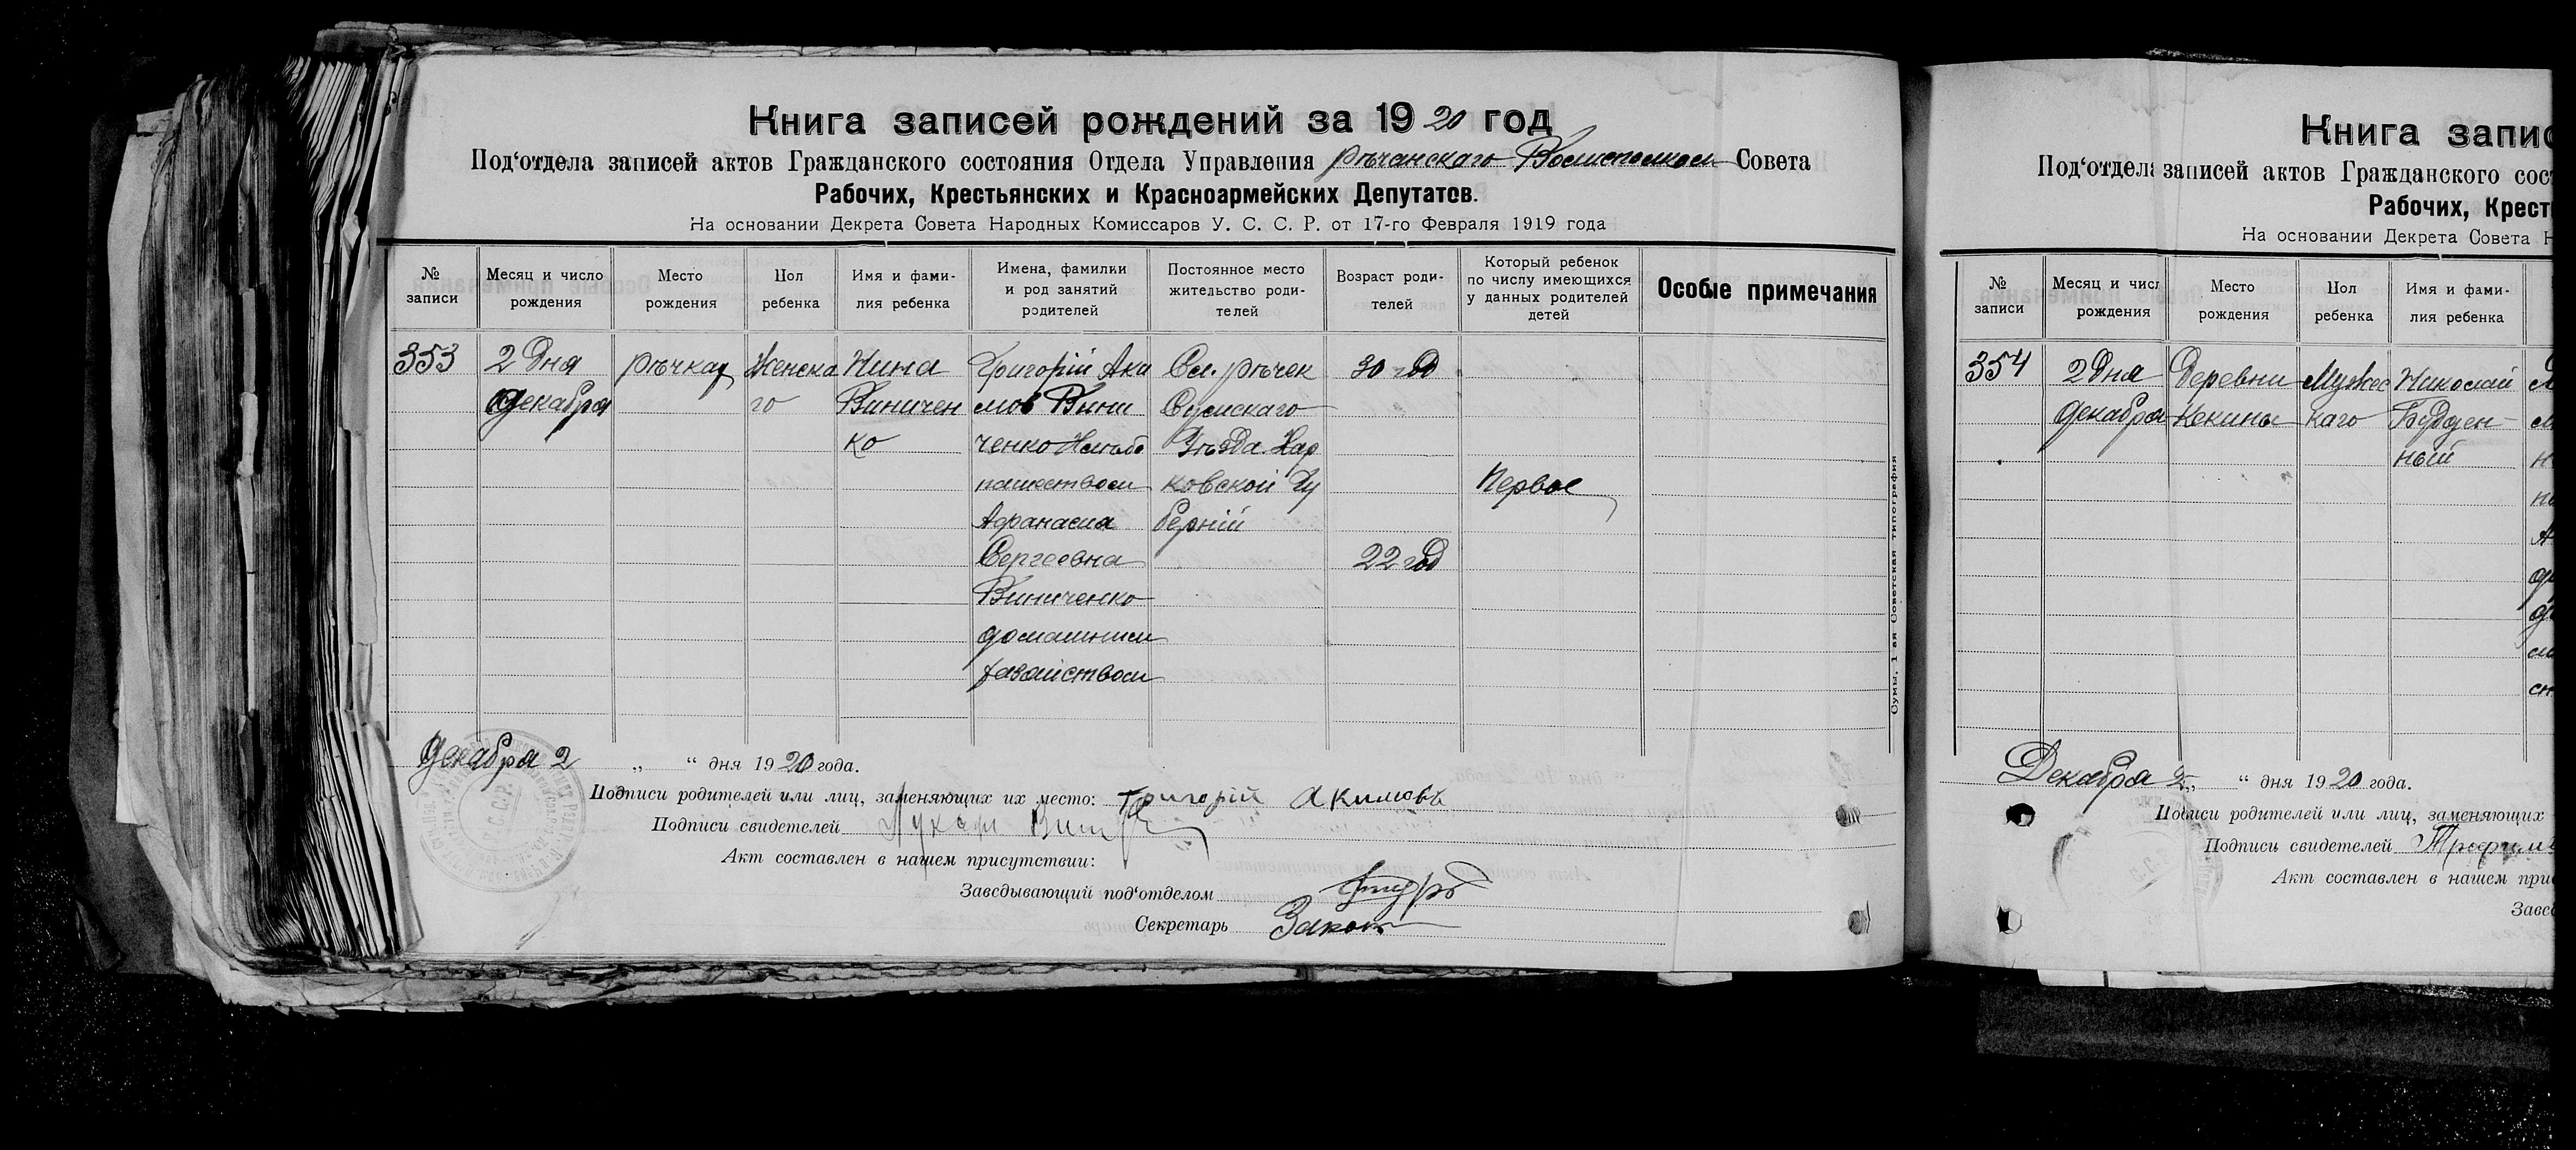 Книга записей рождений за 1920 год
Под‘отдела записей актов Гражданского состояния Отдела Управления Рѣчанскаго Волисполком Совета
Рабочих, Крестьянских и Красноармейских Депутатов.
На основании Декрета Совета Народных Комиссаров У. С. С. Р. от 17-го Февраля 1919 года
№ записи
Месяц и число рождения
Место рождения
Пол ребенка
Имя и фами-
лия ребенка
Имена, фамилии
и род занятий
родителей
Постоянное место
жительство роди-
телей
Возраст роди-
телей
Который ребенок
по числу имеющихся
у данных родителей
детей
Особые примечания
353
2 Дня
декабря
Рѣчка
Женска
го
Нина
Виничен
ко
Григорій Аки
мов Вини
ченко Хлѣбо
пашеством
Афанасиа
Сергеевна
Виниченко
домашним
хазайством
Сл. Рѣчек
Сумскаго
Уѣзда Хар
ковской Гу
берній
30 год
22 год
Первое
Декабря 2 „ “ дня 1920 года.
Подписи родителей или лиц, заменяющих их место: Григорій Акимовъ
Подписи свидетелей
Акт составлен в нашем присутствии:
Заведывающий под‘отделом
Секретарь
Сумы, 1-ая Советская типография
Книга запис
Под‘отдела записей актов Гражданского сос
Рабочих, Крест
На основании Декрета Совета Н
№ записи
Месяц и числ
рождения
Место рождения
Пол ребенка
Имя и фами-
лия ребенка
354
2 Дня
декабря
Деревни
Кекины
Мужес
каго
Николай
Будден-
ный
Декабря 2 „ “ дня 1920 года.
Подписи родителей или лиц, заменяющих
Подписи свидетелей Трофим
Акт составлен в нашем при
Завед